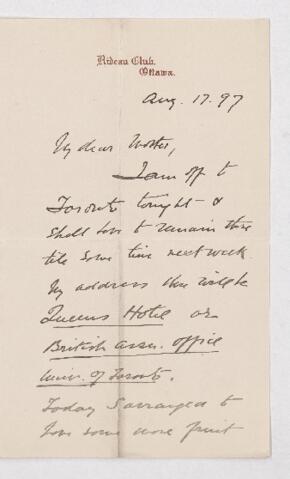 Rideau Club,
Ottawa.
Aug. 17. 97
My dear Mother,
I am off to
Toronto tonight &
shall have to remain there
till some time next week.
My address there will be
Queens Hotel or
British assn. office
Univ. of Toronto.
Today I arranged to
have some more fruit